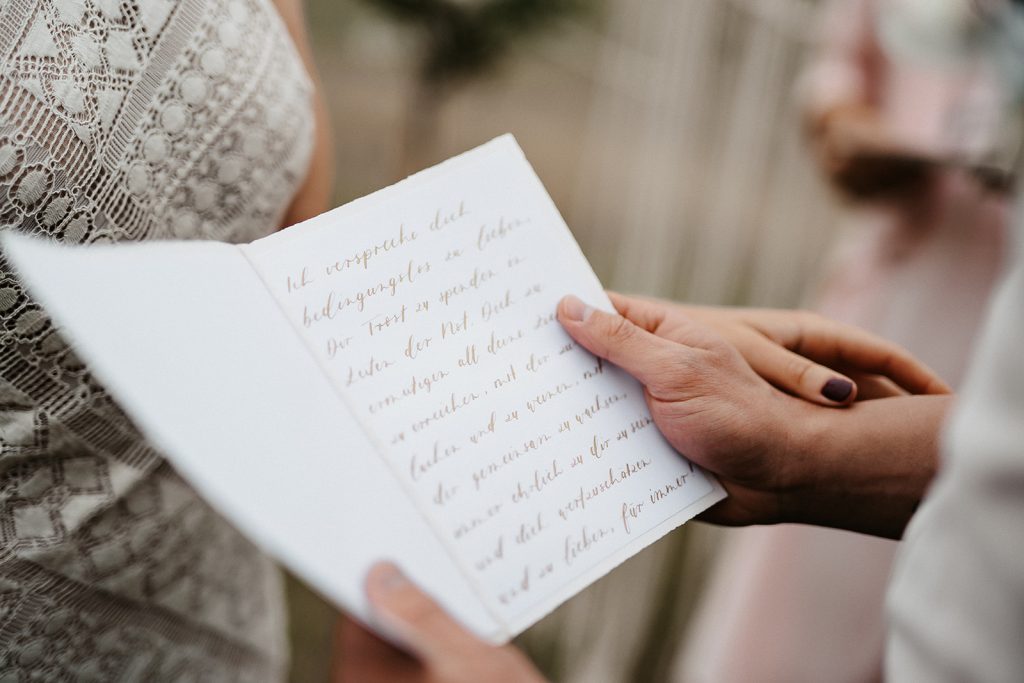 Ich verspreche dich
bedingungslos zu lieben,
Dir Trost zu spenden in
Zeiten der Not. Dich zu
ermutigen all deine
zu erreichen, mit dir zu
lachen und zu weinen, mit
dir gemeinsam zu wachsen,
immer ehrlich zu dir zu sein
und dich wertzuschätzen
und zu lieben, für immer!